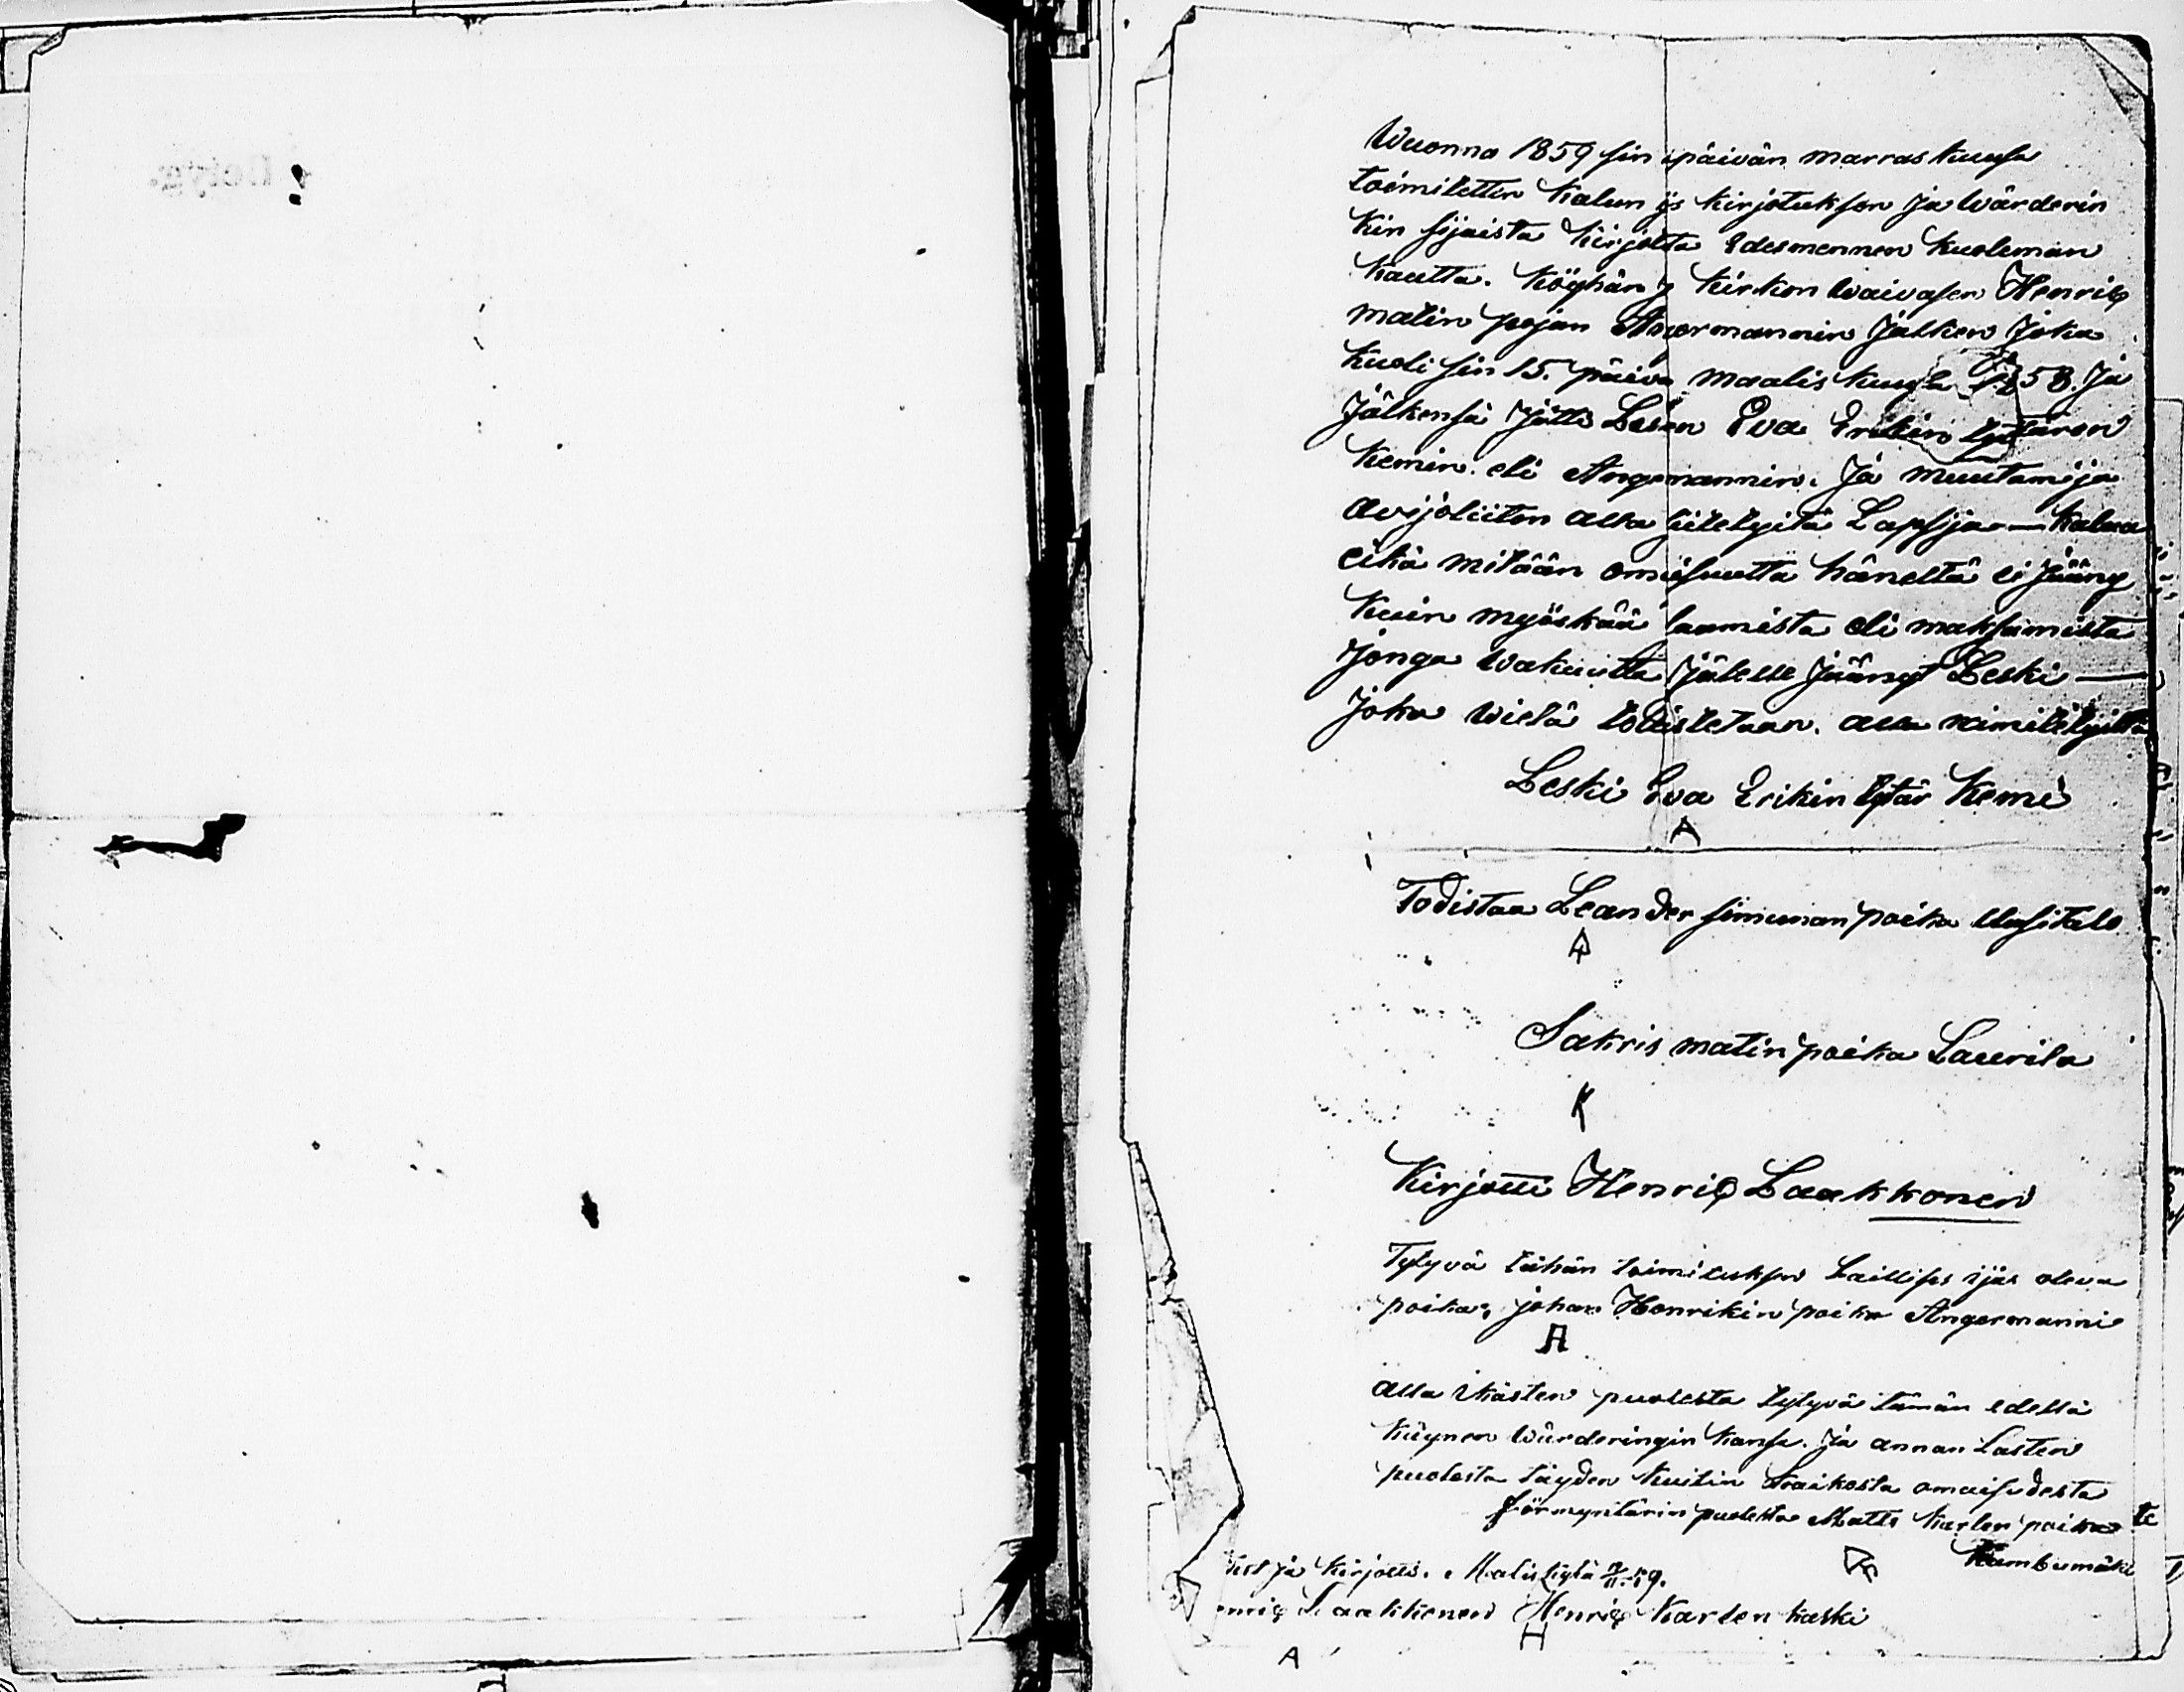 Wuonna 1859 sin päivän marras kuusa
toimitettin kalun ÿs kirjotuksen ja Wärderin
kin sijaista kirjotta Edesmennen kuoleman
kautta. köyhän ja kirkon waivasen Henriq
matin pojan Angermannin jälken joka
kuoli sin 15. päivä maalis kuusa 1858. ja
jälkensä jätti Lesen Eva Erikin tytären
kemin. eli Angemannin. ja muutamija
avijoliiton alla siitetyitä Lapsija — kalua
eikä mitään omasuutta häneltä ei jääny
kuin myöskää saamista eli maksamista
jonga wakuutta jälelle jäänyt Leski —
joka wielä todistetaan. alla nimitetyiltä
Leski Eva Erikin tytär kemi
A
Todistaa Leander simunan poika Uusitalo
Sakris matin poika Laurila
K
Kirjotti Henriq Laakkonen
Tytyvä tähän toimituksen Laillises ijäs oleva
poika, johan Henrikin poika Angermanni
A
alla ikästen puolesta tytyvä tämän edellä
käynen Wärderingin kansa. ja annan Lasten
puolesta täyden kuitin kaikesta omaisudesta
förmyntärin puolesta Matti karlen poika
kambumäki
ja kirjotti. 59.
enriq Laakkonen Henriq karlen kaski
A H